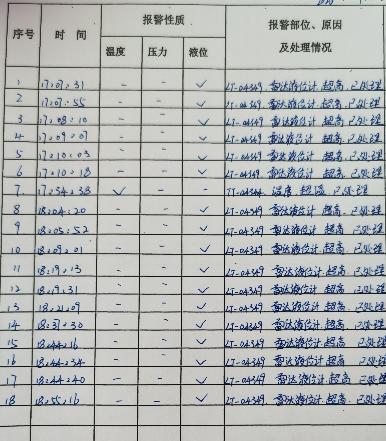 序号 时间 报警性质 报警部位、原因
温度 压力 液位 及处理情况
1 17:07:31 - - ✓ LT-04349 雷达液位计 超高. 已处理
2 17:07:55 - - ✓ LT-04349 雷达液位计 超高. 已处理
3 17:08:10 - - ✓ LT-04349 雷达液位计 超高. 已处理
4 17:09:07 - - ✓ LT-04349 雷达液位计 超高. 已处理
5 17:10:03 - - ✓ LT-04349 雷达液位计 超高. 已处理
6 17:10:18 - - ✓ LT-04349 雷达液位计 超高. 已处理
7 17:54:38 ✓ - - 温度. 超温 已处理
8 18:04:20 - - ✓ LT-04349 雷达液位计 超高. 已处理
9 18:05:52 - - ✓ LT-04349 雷达液位计 超高. 已处理
10 18:09:01 - - ✓ LT-04349 雷达液位计 超高. 已处理
11 18:19:13 - - ✓ LT-04349 雷达液位计 超高. 已处理
12 18:19:31 - - ✓ LT-04349 雷达液位计 超高. 已处理
13 18:21:09 - - ✓ LT-04349 雷达液位计 超高. 已处理
14 18:37:30 - - ✓ LT-04349 雷达液位计 超高. 已处理
15 18:44:16 - - ✓ LT-04349 雷达液位计 超高. 已处理
16 18:44:34 - - ✓ LT-04349 雷达液位计 超高. 已处理
17 18:44:40 - - ✓ LT-04349 雷达液位计 超高. 已处理
18 18:55:16 - - ✓ LT-04349 雷达液位计 超高. 已处理